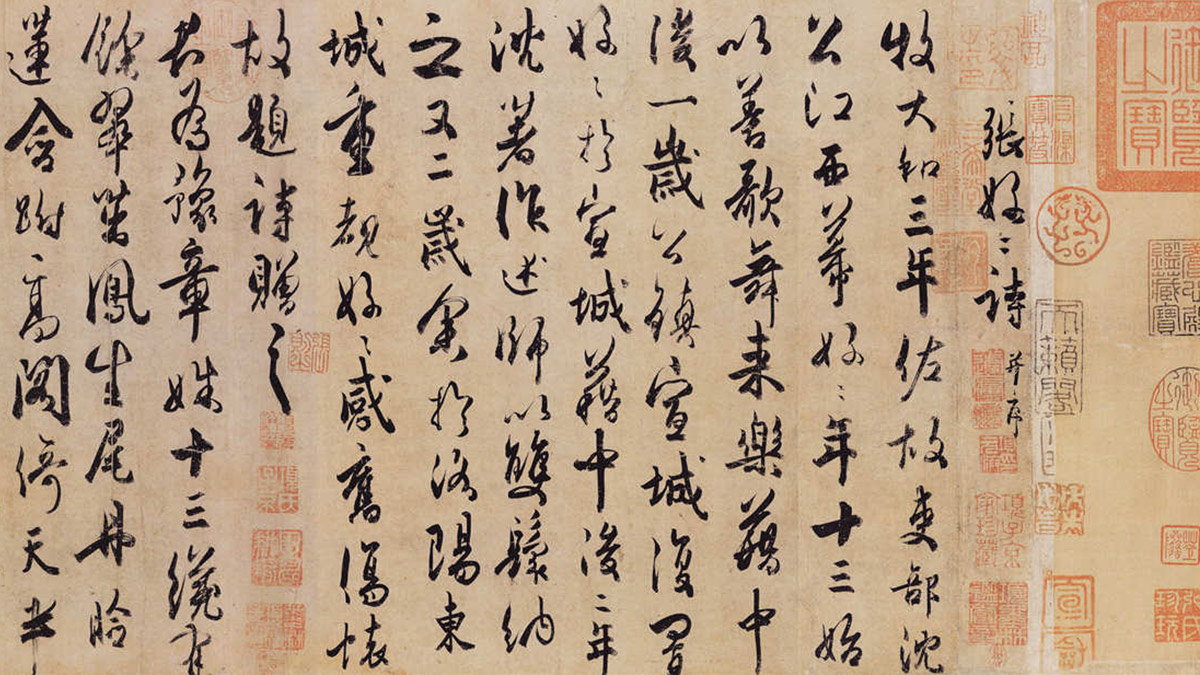 御覽之寶
天籟閣
張好〻詩 并序
牧大和三年佐故吏部沈
公江西幕好〻年十三始
以善歌舞来樂籍中
後一歲公鎮宣城復置
好〻於宣城籍中後二年
沈著作述師以雙鬟納
之又二歲余於洛陽東
城重覩好〻感舊傷懷
故題詩贈之
君為豫章姝十三纔有
餘翠茁鳳生尾丹臉
蓮含跗高閣倚天半